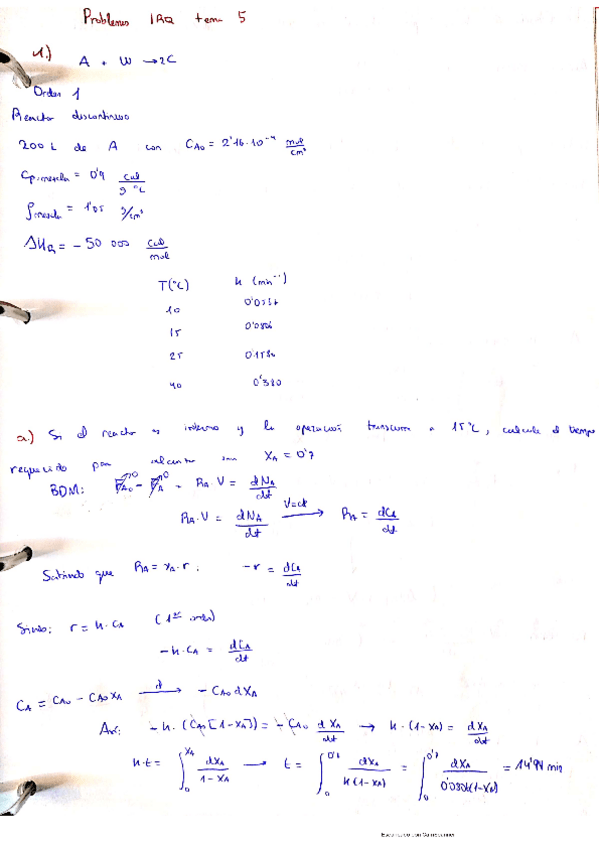 Problemas IRQ tema 5
1.)
A + W → 2C
Orden 1
Reactor discontinuo
200 L de A con CA0 = 2'16·10⁻⁴ mol/cm³
Cp mezcla = 0'9 cal/g °C
ρmezcla = 1'05 g/cm³
ΔHR = - 50 000 cal/mol
T(°C) k (min⁻¹)
10
15 0'0806
25
40 0'380
a.) Si el reactor es isotermo y la operación transcurre a 15°C, calcule el tiempo
requerido para alcanzar una XA = 0'7
BDM: FA0 - FA + RA·V = dNA/dt
RA·V = dNA/dt V=ct → RA = dCA/dt
Sabiendo que RA = νA·r : -r = dCA/dt
Siendo: r = k·CA (1er orden)
-k·CA = dCA/dt
CA = CA0 - CA0XA d → - CA0 dXA
Así: - k·(CA0[1-XA]) = - CA0 dXA/dt → k·(1-XA) = dXA/dt
k·t = ∫₀^XA dXA/(1-XA) → t = ∫₀^0'7 dXA/(k(1-XA)) = ∫₀^0'7 dXA/(0'0806(1-XA)) = 14'94 min